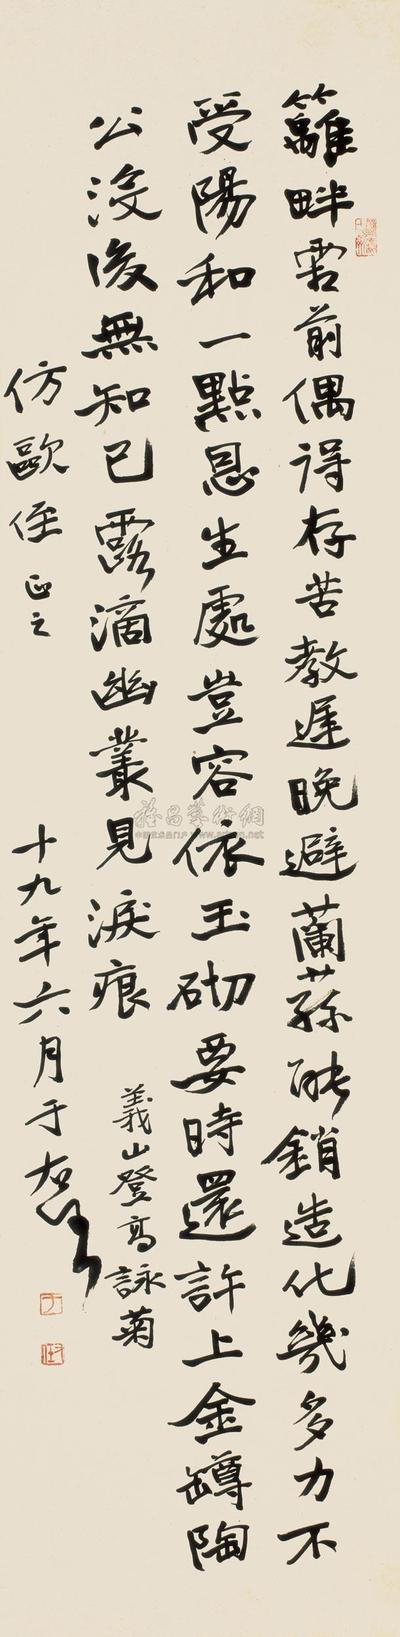 籬畔霜前偶得存苦教遲晚避蘭蓀能銷造化幾多力不
受陽和一點恩生處豈容依玉砌要時還許上金罇陶
公沒後無知己露滴幽叢見淚痕
義山登高詠菊
仿歐侄正之
十九年六月于右任